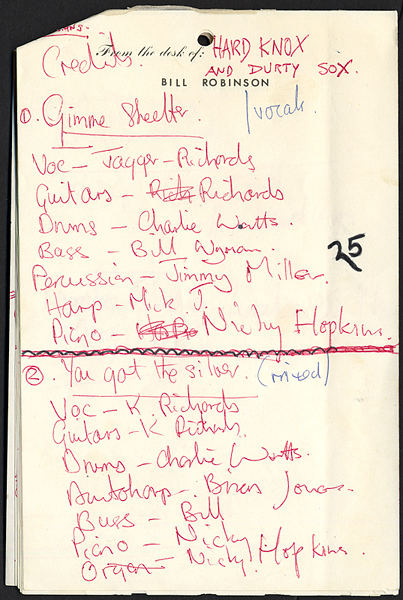 Credits
From the desk of: HARD KNOX
AND DURTY SOX.
BILL ROBINSON
①. Gimme Shelter. /vocals.
Voc – Jagger – Richards
Guitars – Richards
Drums – Charlie Watts.
Bass – Bill Wyman.
25
Percussion – Jimmy Miller.
Harp – Mick J.
Piano – Nicky Hopkins.
②. You got the silver. (mixed)
Voc – K. Richards
Guitars – K Richards.
Drums – Charlie Watts.
Autoharp – Brian Jones.
Bass – Bill
Piano – Nicky
Organ – Nicky Hopkins.